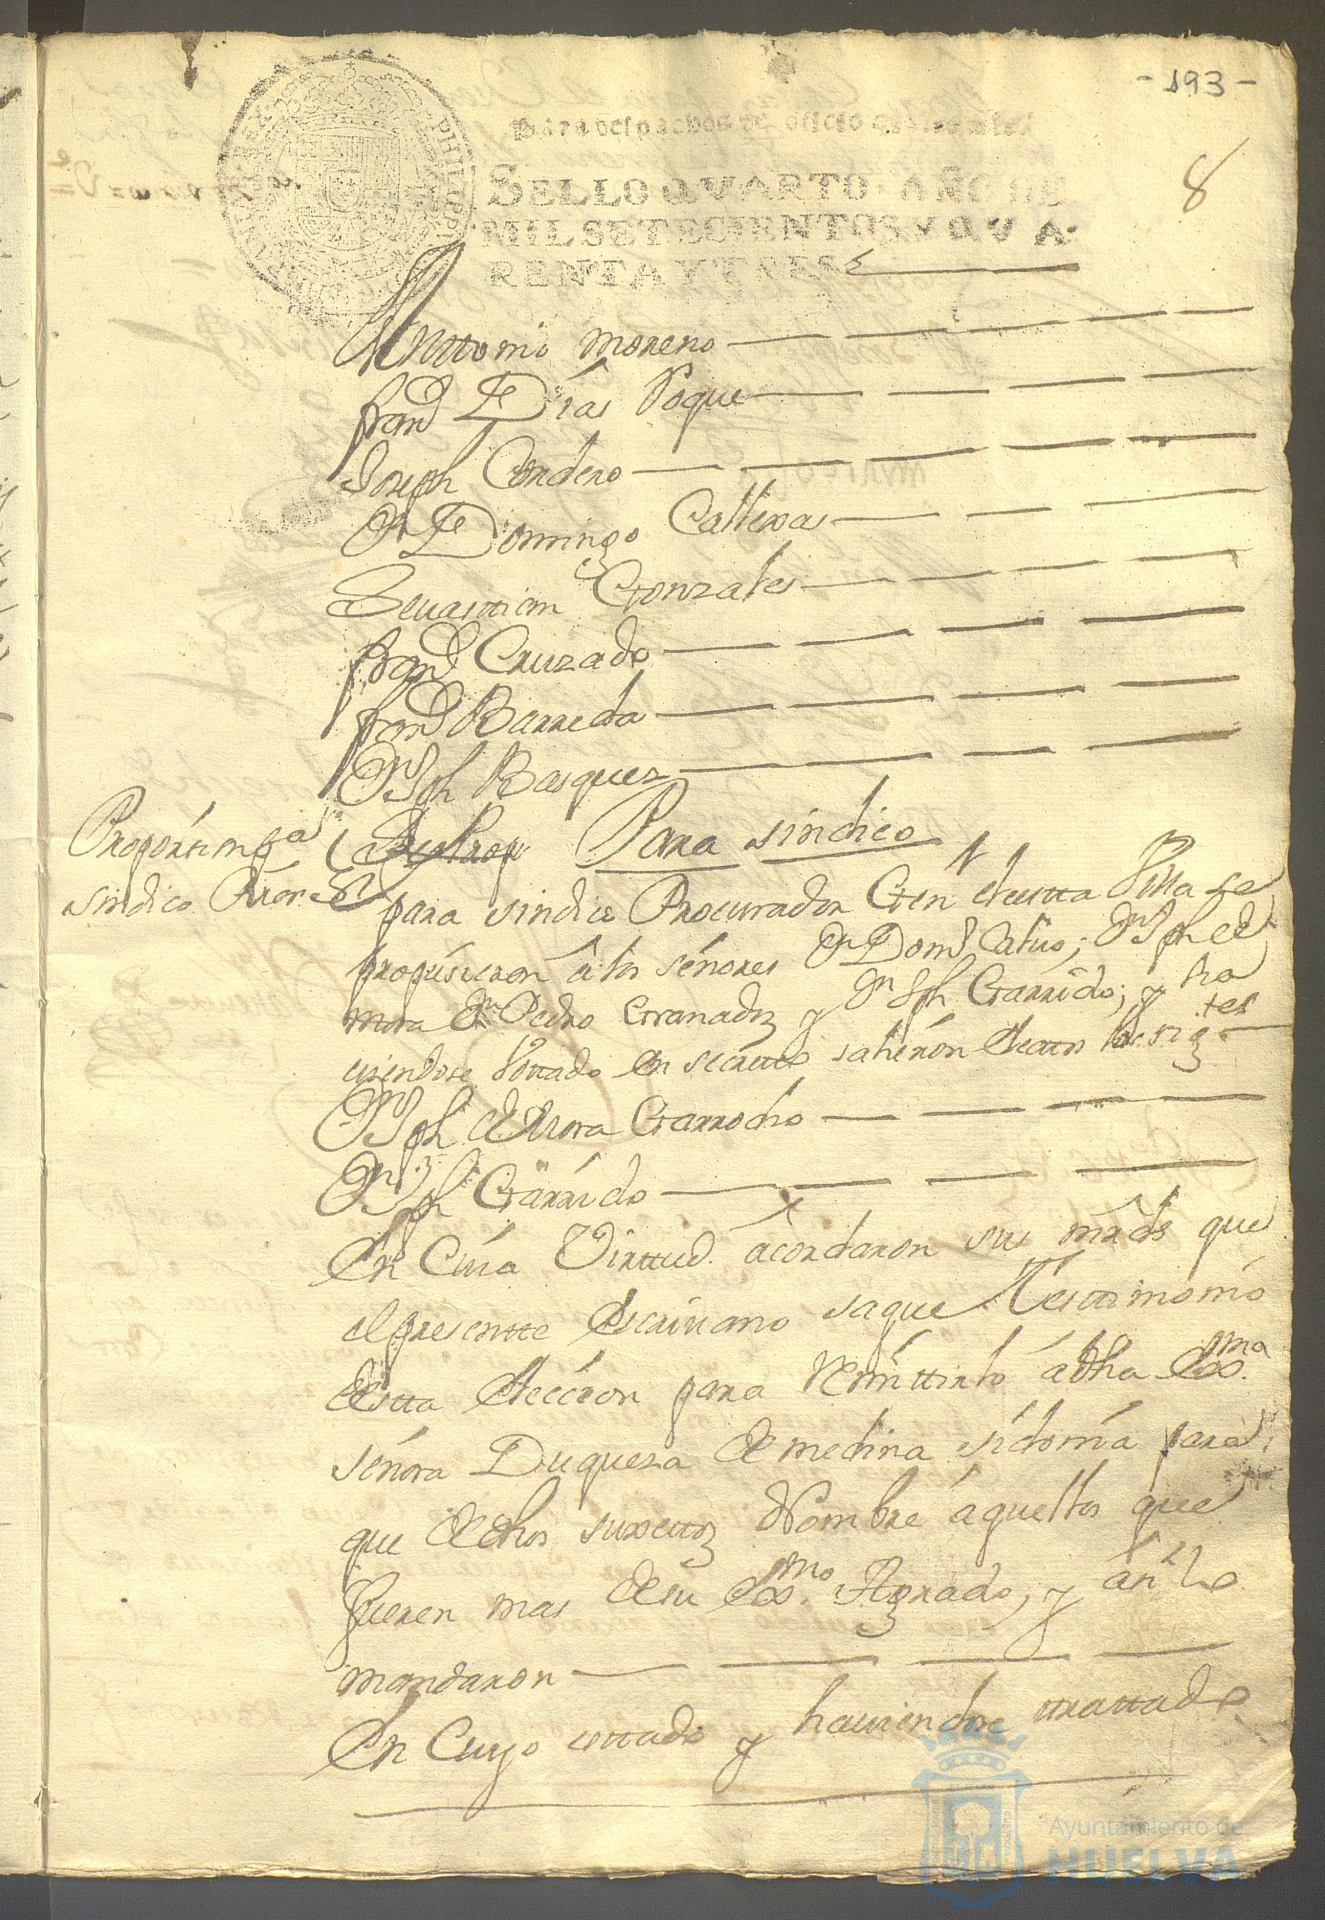 - 193 -
8
Para despachos de oficio
SELLO QVARTO AÑO DE
MIL SETECIENTOS Y QVA-
RENTA Y TRES
PHILIPP
Anttonio Moreno
franco Dias Roque
Joseph Cordero
Dn Domingo Callexas
Seuasttian Gonzales
franco Cruzado
franco Barreda
Dn Jph Basquez
Para sindico
Proporsn pa
sindico Pror Gl
para sindico Procurador Gen destta Villa se
propusieron â los señores Dn Domo Caluo; Dn Jph de
mora Dn Pedro Granado y Dn Jph Garrido; y ha
uiendose Vottado en secretto salieron electtos los sigtes
Dn Jph de Mora Garrocho
Dn Jph Garrido
En Cuia Virttud acordaron sus mrds que
el presentte escriuano saque Testtimonio
destta eleccion para Remittirlo a dha Exma
señora Duqueza de medina sidonia para
que de dhos suxettos Nombre aquellos que
fueren mas de su Exmo Agrado, y asi lo
mandaron
En Cuyo esttado y hauiendose trattado
Ayuntamiento de
HUELVA